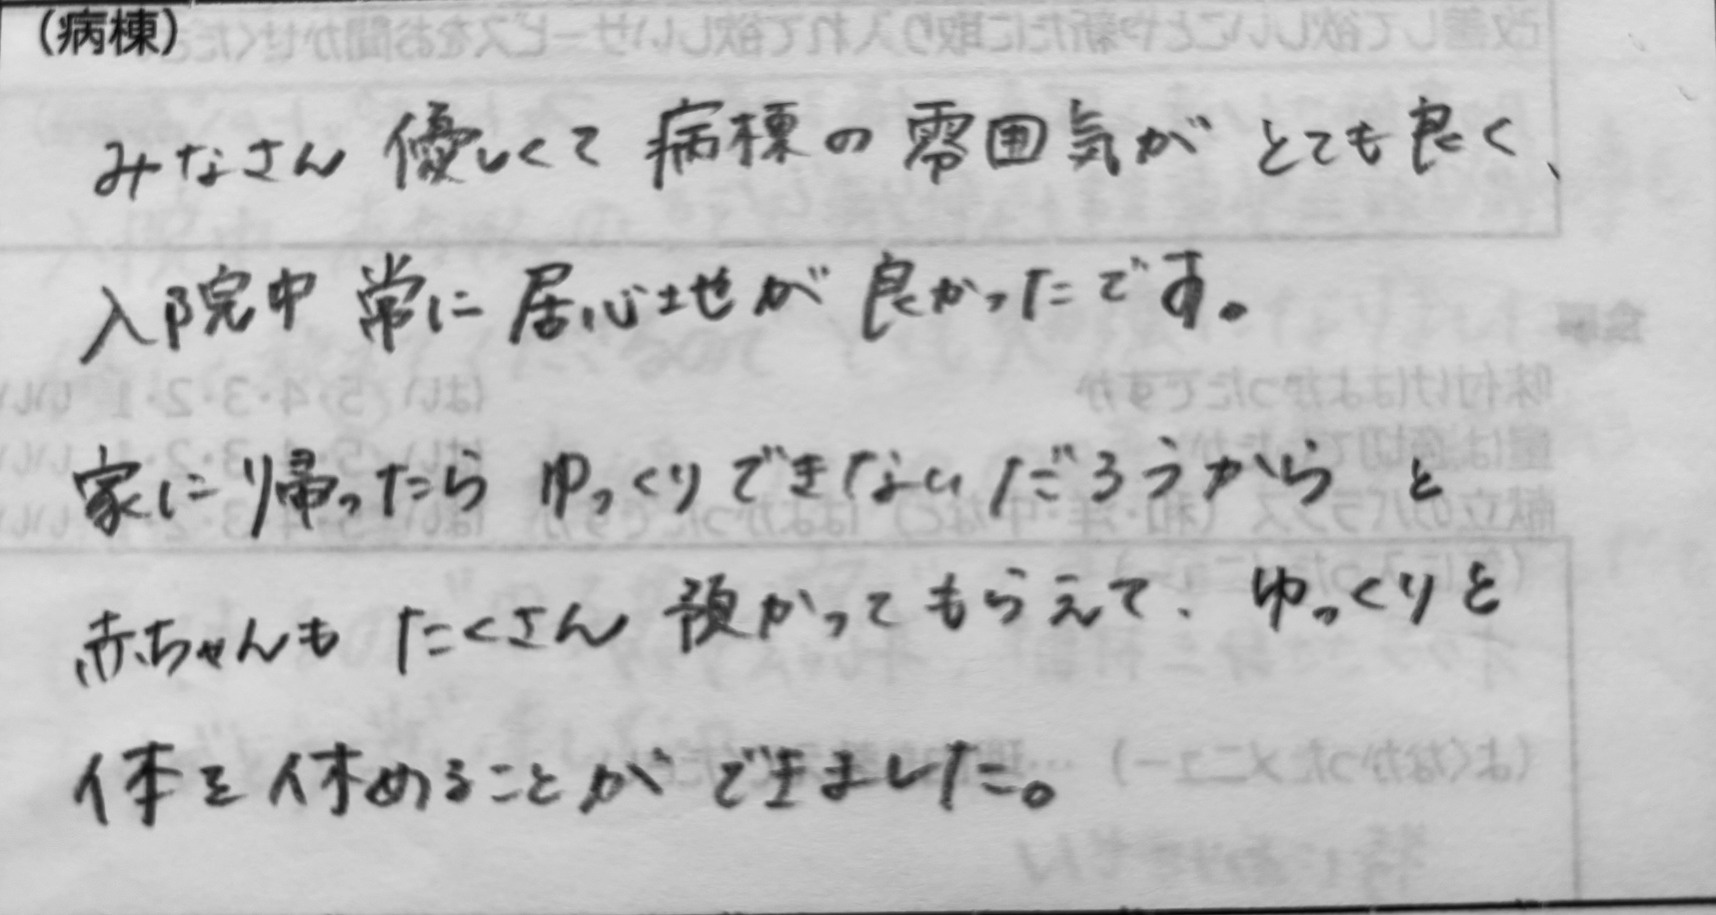 (病棟)
みなさん 優しくて 病棟の 雰囲気が とても良く、
入院中 常に 居心地が 良かったです。
家に帰ったら ゆっくりできないだろうから と
赤ちゃんも たくさん 預かってもらえて、ゆっくりと
体を休めることが できました。